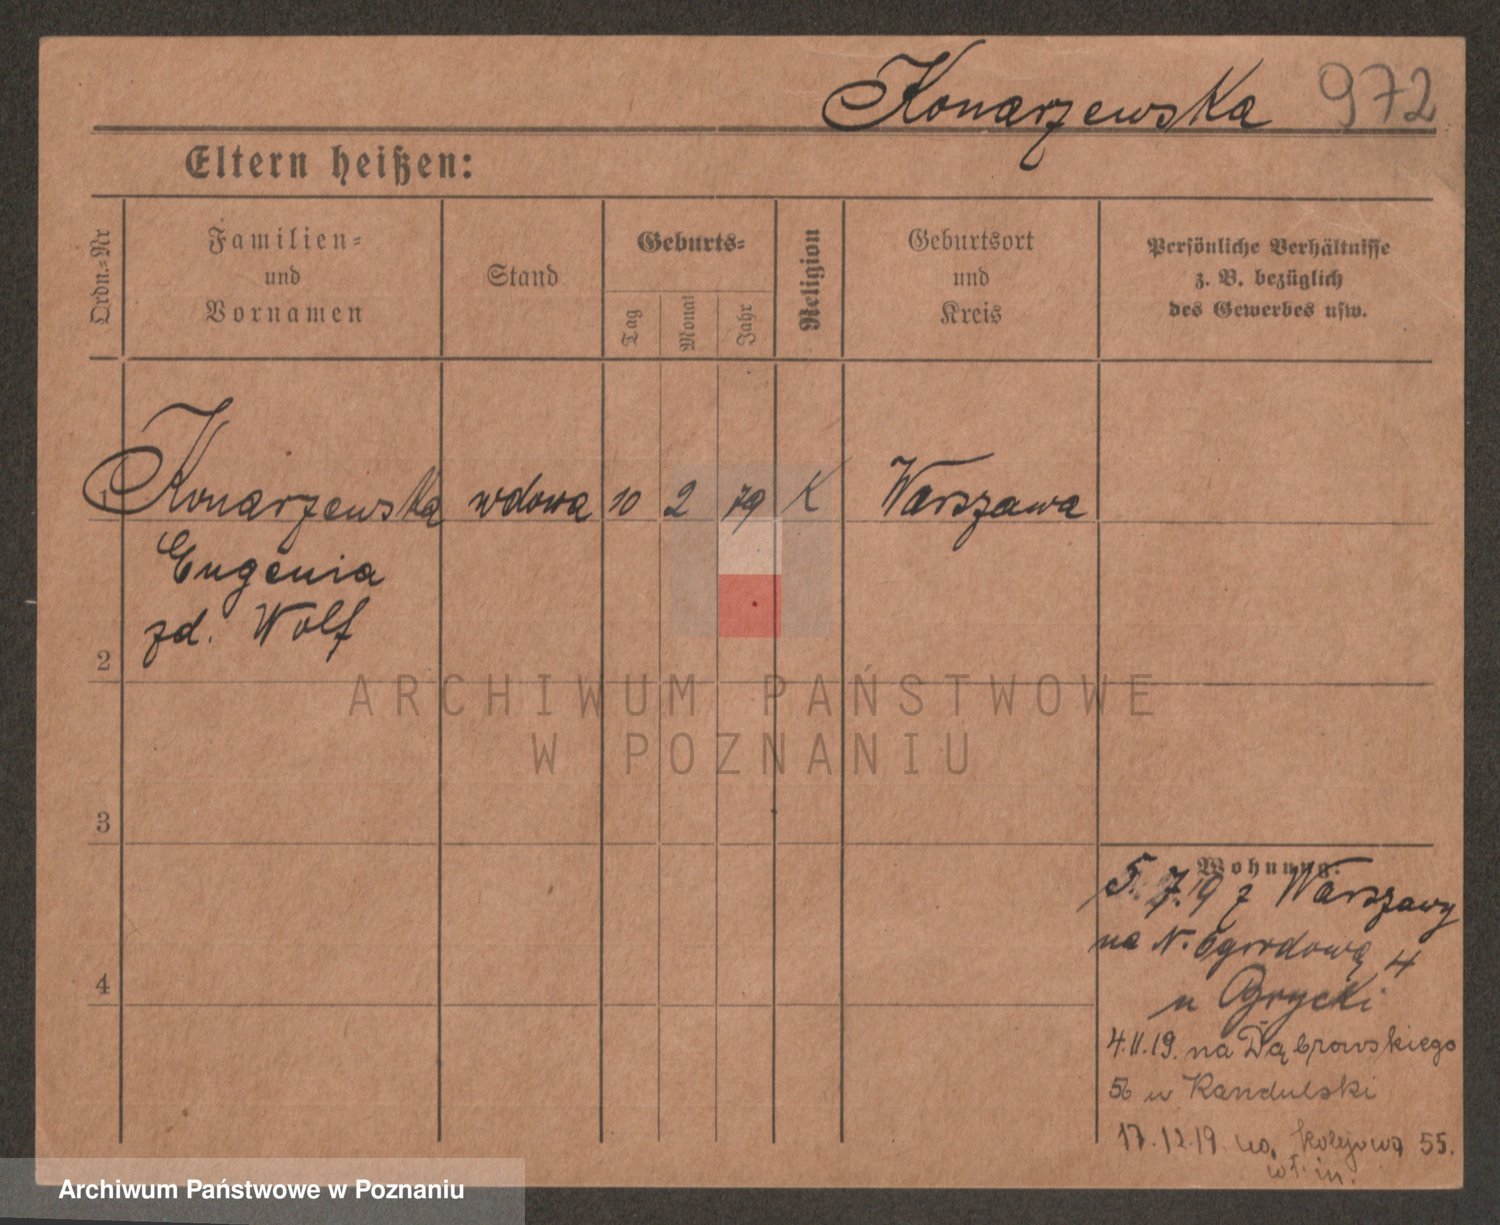 Konarzewska 972
Eltern heißen:
Ordn.=Nr
Familien=
und
Vornamen
Stand
Geburts=
Tag
Monat
Jahr
Religion
Geburtsort
und
Kreis
Persönliche Verhältnisse
z. B. bezüglich
des Gewerbes usw.
1 Konarzewska wdowa 10 2 79 K Warszawa
Eugenia
zd. Wolf
2
3
4
Wohnung.
5. 7. 19 z Warszawy
na N. Ogrodową 4
u
4.11.19. na Dąbrowskiego
56 u Kandulski
17.12.19. na Kolejową 55.
wł. m.
ARCHIWUM PAŃSTWOWE
W POZNANIU
Archiwum Państwowe w Poznaniu